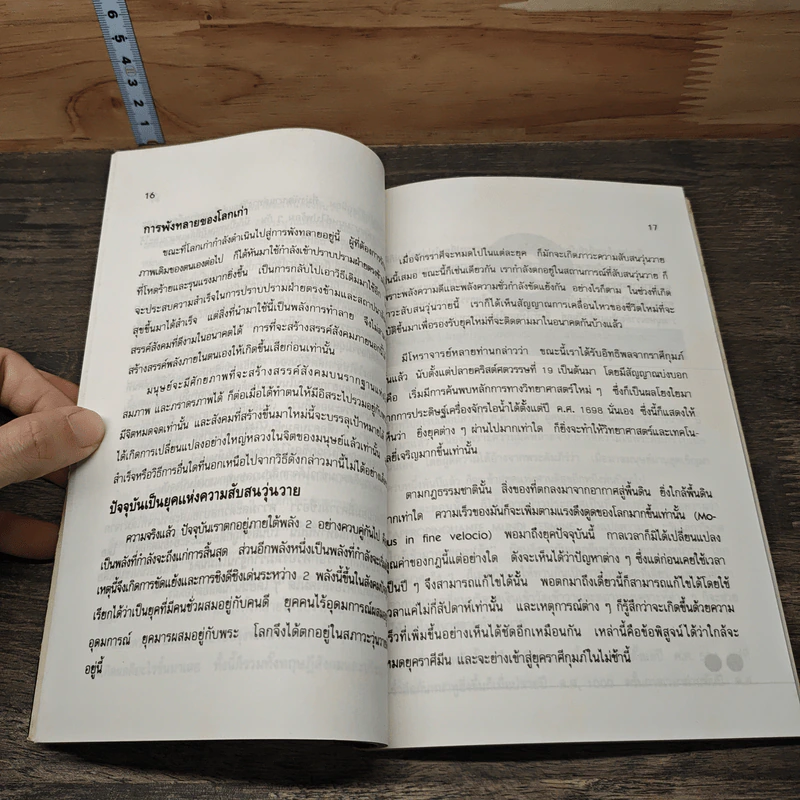 6
5
4
3
2
1
16
การพังทลายของโลกเก่า
ขณะที่โลกเก่ากำลังดำเนินไปสู่การพังทลายอยู่นี้ ผู้ที่ต้องการ
ภาพเดิมของตนเองต่อไป ก็ได้หันมาใช้กำลังเข้าปราบปรามฝ่ายตรงข้าม
ที่โหดร้ายและรุนแรงมากยิ่งขึ้น เป็นการกลับไปเอาวิธีเดิมมาใช้อีก
จะประสบความสำเร็จในการปราบปรามฝ่ายตรงข้ามและสถาปนา
สุขขึ้นมาได้สำเร็จ แต่สิ่งที่นำมาใช้นี้เป็นพลังการทำลาย จึงไม่
สรรค์สังคมที่ดีงามในอนาคตได้ การที่จะสร้างสรรค์สังคมภายนอกนั้น
สร้างสรรค์พลังภายในตนเองให้เกิดขึ้นเสียก่อนเท่านั้น
มนุษย์จะมีศักยภาพที่จะสร้างสรรค์สังคมบนรากฐานแห่ง
สมภาพ และภราดรภาพได้ ก็ต่อเมื่อได้ทำตนให้มีอิสระไปรวมอยู่กับ
มีจิตหมดจดเท่านั้น และสังคมที่สร้างขึ้นมาใหม่นี้จะบรรลุเป้าหมายได้
ได้เกิดการเปลี่ยนแปลงอย่างใหญ่หลวงในจิตของมนุษย์แล้วเท่านั้น
สำเร็จหรือวิธีการอื่นใดที่นอกเหนือไปจากวิธีดังกล่าวมานี้ไม่ได้อย่าง
ปัจจุบันเป็นยุคแห่งความสับสนวุ่นวาย
ความจริงแล้ว ปัจจุบันเราตกอยู่ภายใต้พลัง 2 อย่างควบคู่กันไป
เป็นพลังที่กำลังจะถึงแก่การสิ้นสุด ส่วนอีกพลังหนึ่งเป็นพลังที่กำลังจะ
เหตุนี้จึงเกิดการขัดแย้งและการชิงดีชิงเด่นระหว่าง 2 พลังนี้ขึ้นในสังคม
เรียกได้ว่าเป็นยุคที่มีคนชั่วผสมอยู่กับคนดี ยุคคนไร้อุดมการณ์ผสม
อุดมการณ์ ยุคมารผสมอยู่กับพระ โลกจึงได้ตกอยู่ในสภาวะวุ่นวาย
อยู่นี้
17
เมื่อจักรราศีจะหมดไปในแต่ละยุค ก็มักจะเกิดภาวะความสับสนวุ่นวาย
นนี้เสมอ ขณะนี้ก็เช่นเดียวกัน เรากำลังตกอยู่ในสถานการณ์ที่สับสนวุ่นวาย ก็
เพราะพลังความดีและพลังความชั่วกำลังขัดแย้งกัน อย่างไรก็ตาม ในช่วงที่เกิด
าวะสับสนวุ่นวายนี้ เราก็ได้เห็นสัญญาณการเคลื่อนไหวของชีวิตใหม่ที่จะ
บัติขึ้นมาเพื่อรองรับยุคใหม่ที่จะติดตามมาในอนาคตกันบ้างแล้ว
มีโหราจารย์หลายท่านกล่าวว่า ขณะนี้เราได้รับอิทธิพลจากราศีกุมภ์
นแล้ว นับตั้งแต่ปลายคริสต์ศตวรรษที่ 19 เป็นต้นมา โดยมีสัญญาณบ่งบอก
คือ เริ่มมีการค้นพบหลักการทางวิทยาศาสตร์ใหม่ ๆ ซึ่งก็เป็นผลโยงใยมา
ากการประดิษฐ์เครื่องจักรไอน้ำได้ตั้งแต่ปี ค.ศ. 1698 นั่นเอง ซึ่งนี้ก็แสดงให้
ห็นว่า ยิ่งยุคต่าง ๆ ผ่านไปมากเท่าใด ก็ยิ่งจะทำให้วิทยาศาสตร์และเทคโน-
ลยีเจริญมากขึ้นเท่านั้น
ตามกฎธรรมชาตินั้น สิ่งของที่ตกลงมาจากอากาศสู่พื้นดิน ยิ่งใกล้พื้นดิน
ากเท่าใด ความเร็วของมันก็จะเพิ่มตามแรงดึงดูดของโลกมากขึ้นเท่านั้น (Mo-
us in fine velocio) พอมาถึงยุคปัจจุบันนี้ กาลเวลาก็มิได้เปลี่ยนแปลง
คุณค่าของกฎนี้แต่อย่างใด ดังจะเห็นได้ว่าปัญหาต่าง ๆ ซึ่งแต่ก่อนเคยใช้เวลา
เป็นปี ๆ จึงสามารถแก้ไขได้นั้น พอตกมาถึงเดี๋ยวนี้ก็สามารถแก้ไขได้โดยใช้
เวลาแค่ไม่กี่สัปดาห์เท่านั้น และเหตุการณ์ต่าง ๆ ก็รู้สึกว่าจะเกิดขึ้นด้วยความ
ร็วที่เพิ่มขึ้นอย่างเห็นได้ชัดอีกเหมือนกัน เหล่านี้คือข้อพิสูจน์ได้ว่าใกล้จะ
หมดยุคราศีมีน และจะย่างเข้าสู่ยุคราศีกุมภ์ในไม่ช้านี้